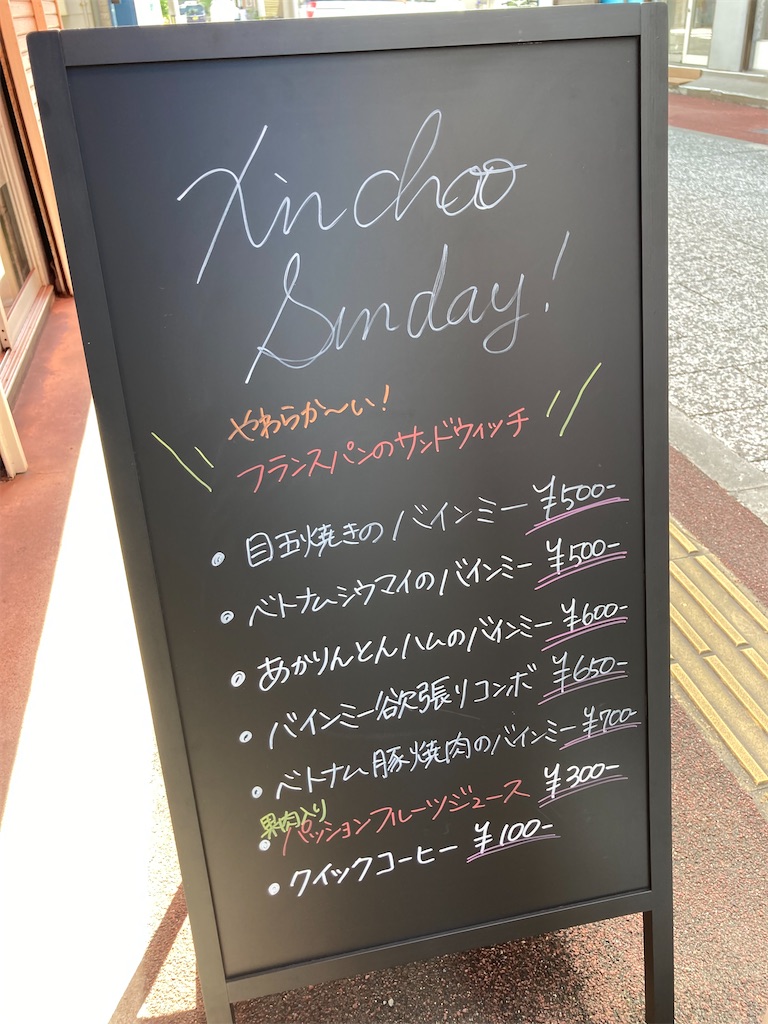 Xin chao
Sunday!
やわらか〜い!
フランスパンのサンドウィッチ
• 目玉焼きのバインミー ¥500-
• ベトナムシウマイのバインミー ¥500-
• あかりんとんハムのバインミー ¥600-
• バインミー欲張りコンボ ¥650-
• ベトナム豚焼肉のバインミー ¥700-
果肉入り
• パッションフルーツジュース ¥300-
• クイックコーヒー ¥100-